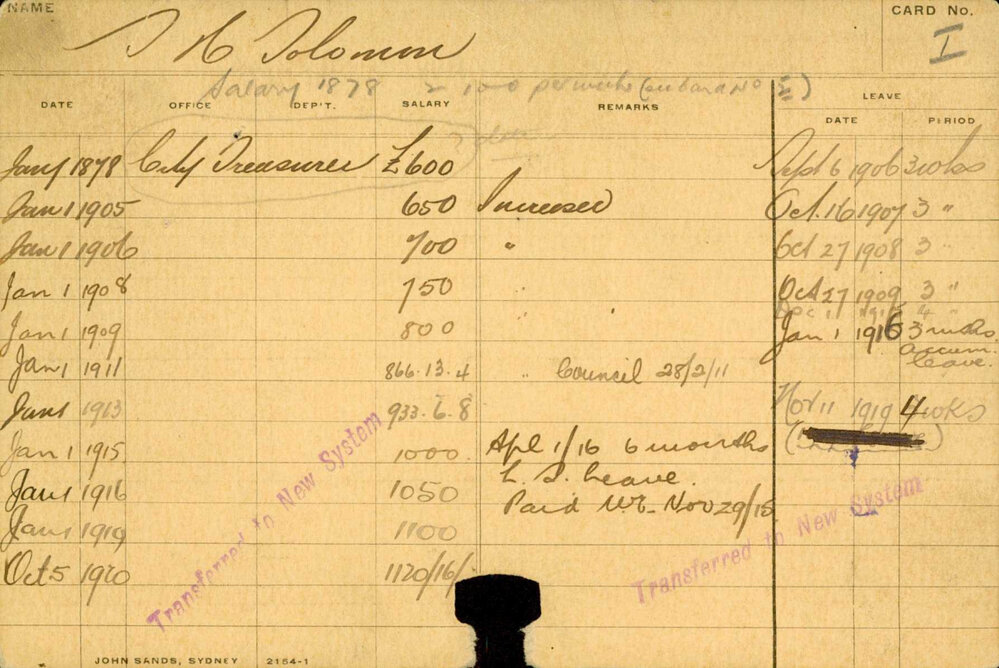 NAME
CARD No.
T H Solomon
I
Salary 1878 100 per
DATE OFFICE DEP'T. SALARY REMARKS LEAVE
DATE PERIOD
Jany 1878 City Treasurer £600 Sept 6 1906 3 wks
Jan 1 1905 650 Increased Oct. 16 1907 3 "
Jan 1 1906 700 " Oct 27 1908 3 "
Jan 1 1908 750 " Oct 27 1909 3 "
Jan 1 1909 800 " Jan 1 1916 3 mths.
accum.
leave.
Jan 1 1911 866.13.4 " Council 28/2/11
Jan 1 1913 933.6.8 Nov 11 1919 4 wks
Jan 1 1915 1000. Apl 1/16 6 months
L. S. Leave.
Jan 1 1916 1050 Paid Nov 29/15
Jan 1 1919 1100
Oct 5 1920 1120/16/.
Transferred to New System
Transferred to New System
JOHN SANDS, SYDNEY 2154-1